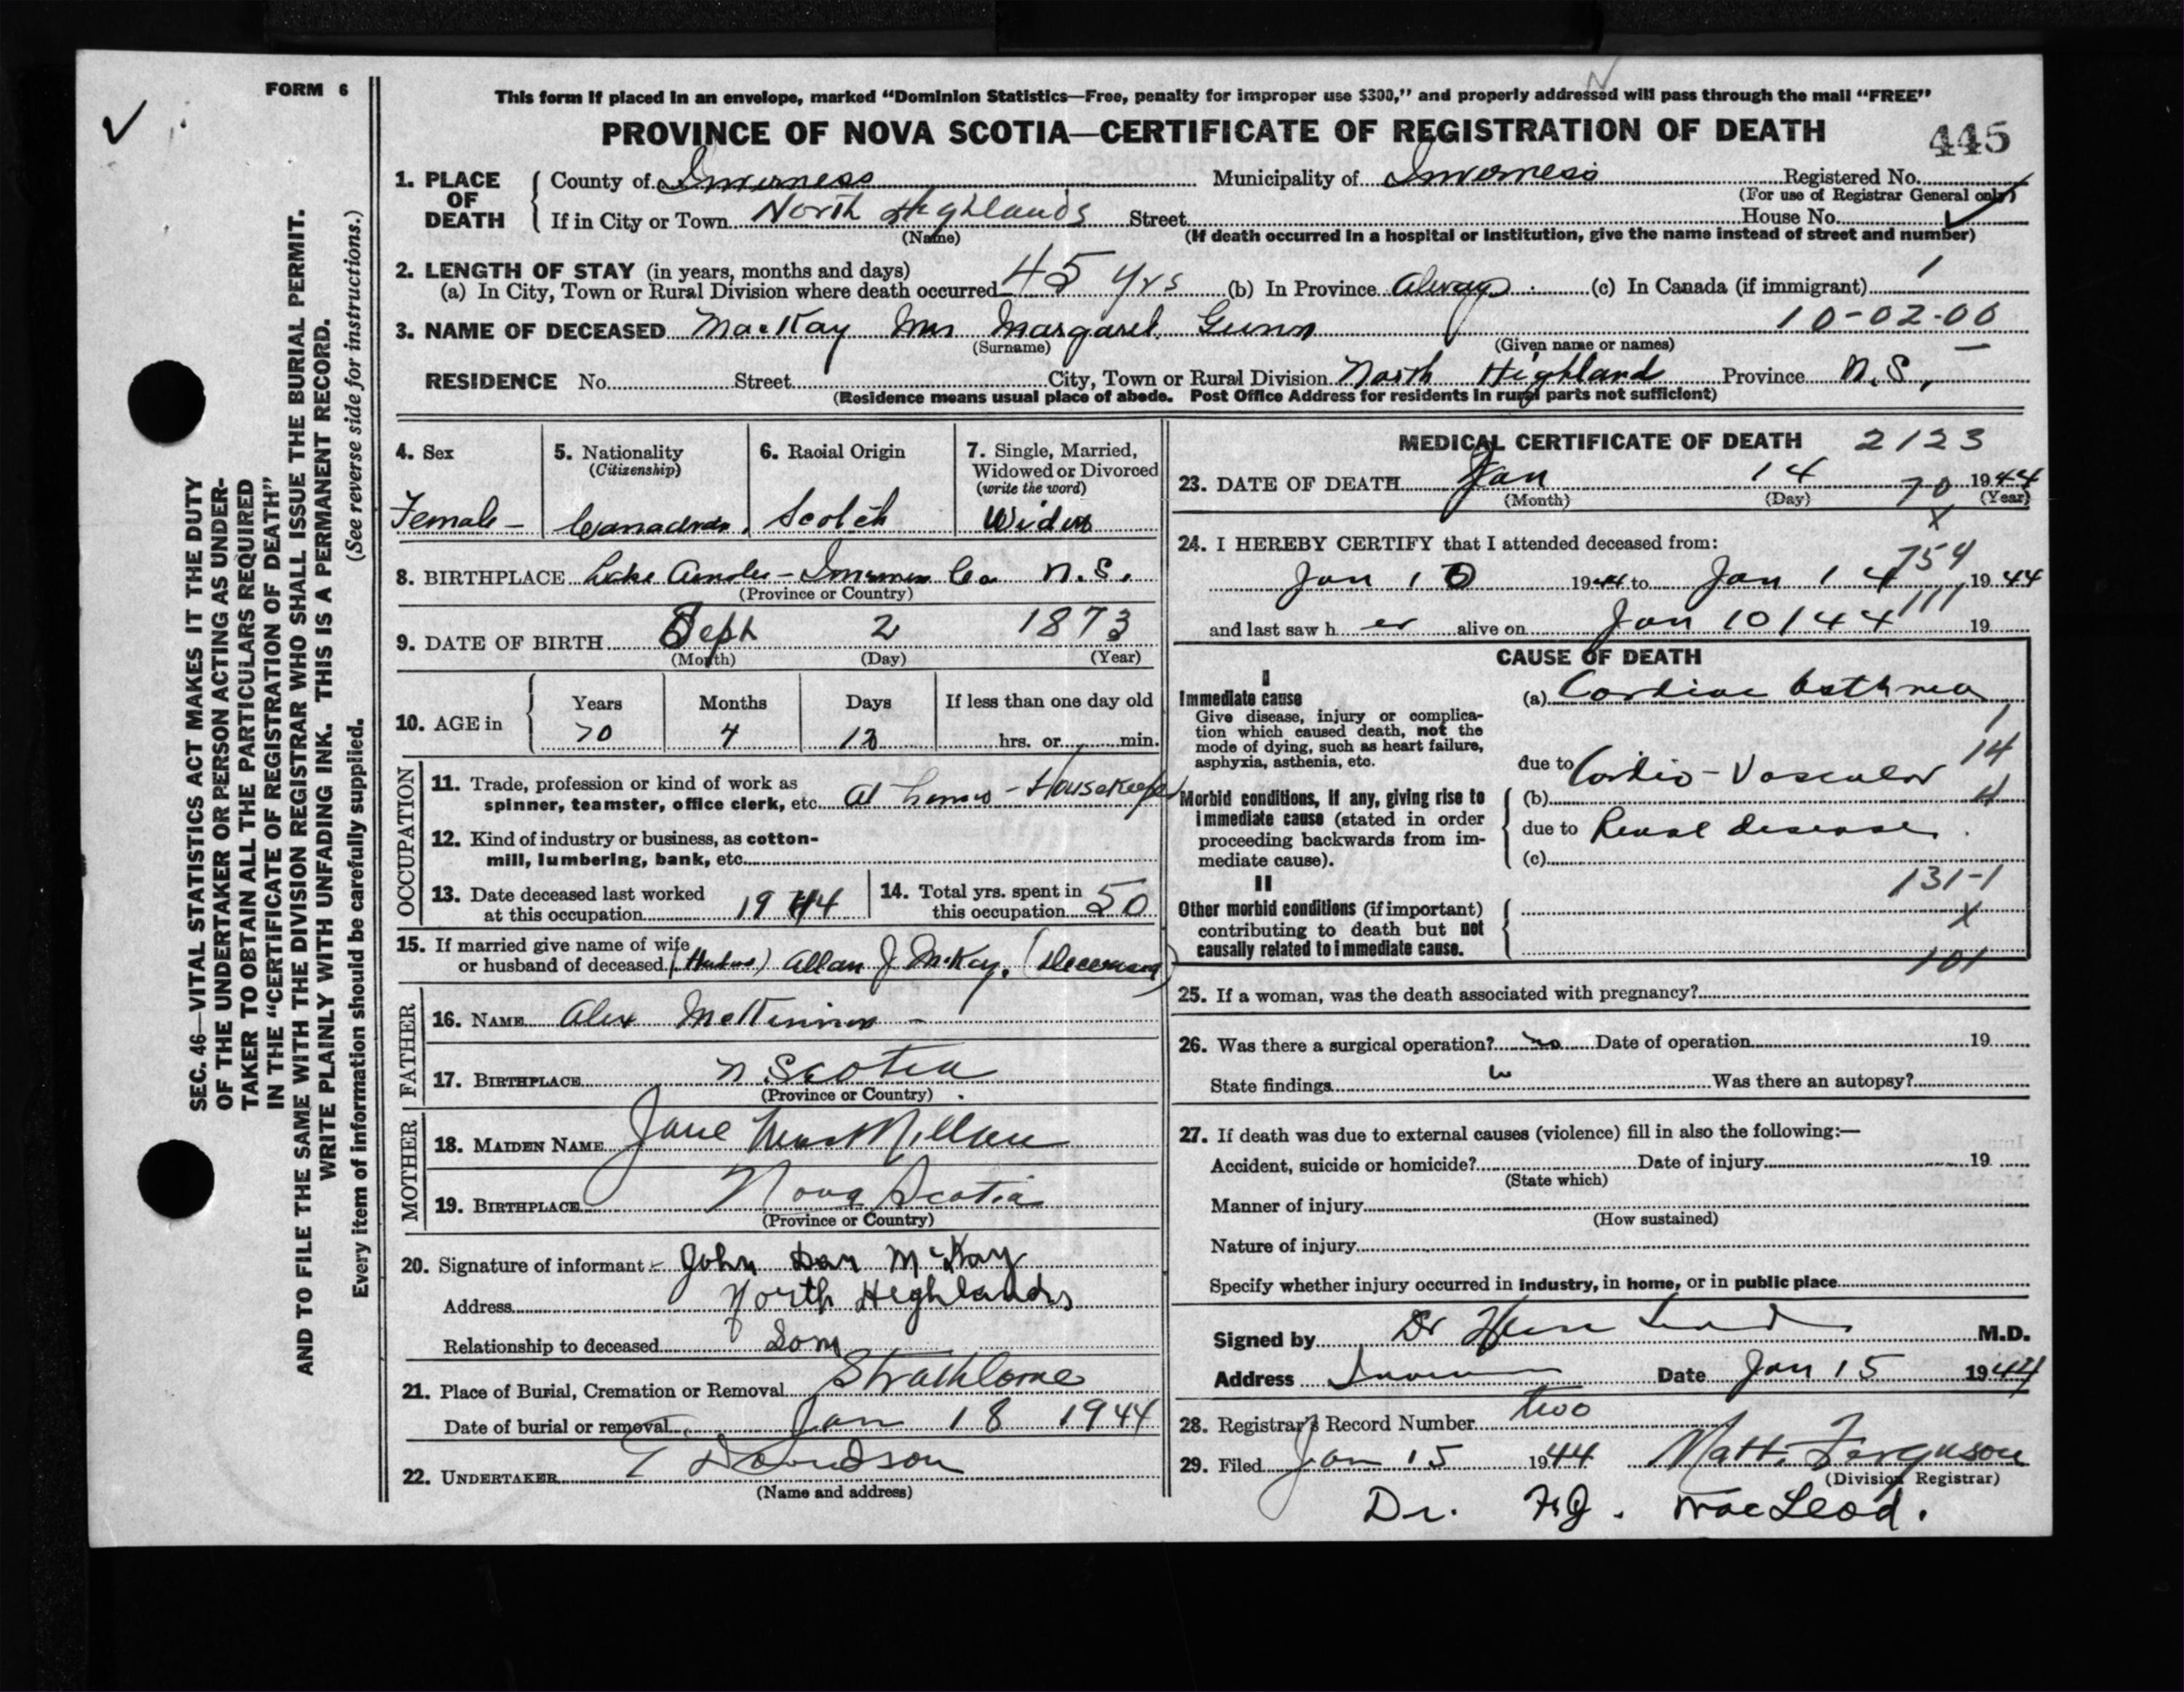 FORM 6
This form if placed in an envelope, marked “Dominion Statistics—Free, penalty for improper use $300,” and properly addressed will pass through the mail “FREE”
PROVINCE OF NOVA SCOTIA—CERTIFICATE OF REGISTRATION OF DEATH 445
1. PLACE OF DEATH
County of Inverness Municipality of Inverness Registered No.
(For use of Registrar General only)
If in City or Town North Highlands Street House No.
(Name) (If death occurred in a hospital or institution, give the name instead of street and number)
2. LENGTH OF STAY (in years, months and days)
(a) In City, Town or Rural Division where death occurred 45 yrs (b) In Province Always (c) In Canada (if immigrant) 1
3. NAME OF DECEASED MacKay Mrs Margaret Gunn 10-02-00
(Surname) (Given name or names)
RESIDENCE No. Street City, Town or Rural Division North Highland Province N.S.
(Residence means usual place of abode. Post Office Address for residents in rural parts not sufficient)
4. Sex
Female –
5. Nationality
(Citizenship)
Canadian
6. Racial Origin
Scotch
7. Single, Married,
Widowed or Divorced
(write the word)
Widow
8. BIRTHPLACE Lake Ainslie – Inverness Co N.S.
(Province or Country)
9. DATE OF BIRTH Sept 2 1873
(Month) (Day) (Year)
10. AGE in
Years Months Days If less than one day old
70 4 12 hrs. or min.
OCCUPATION
11. Trade, profession or kind of work as
spinner, teamster, office clerk, etc. At home – Housekeeper
12. Kind of industry or business, as cotton-
mill, lumbering, bank, etc.
13. Date deceased last worked
at this occupation 1944
14. Total yrs. spent in
this occupation 50
15. If married give name of wife
or husband of deceased Allan J McKay. (Deceased)
FATHER
16. NAME Alex McKinnon
17. BIRTHPLACE N Scotia
(Province or Country)
MOTHER
18. MAIDEN NAME Jane MacMillan
19. BIRTHPLACE Nova Scotia
(Province or Country)
20. Signature of informant John Dan McKay
Address North Highlands
Relationship to deceased Son
21. Place of Burial, Cremation or Removal Strathlorne
Date of burial or removal Jan 18 1944
22. UNDERTAKER T Davidson
(Name and address)
MEDICAL CERTIFICATE OF DEATH 2123
23. DATE OF DEATH Jan 14 1944
(Month) (Day) (Year)
70
X
24. I HEREBY CERTIFY that I attended deceased from:
754
Jan 10 1944 to Jan 14 1944
111
and last saw her alive on Jan 10/44 19
CAUSE OF DEATH
I
Immediate cause
Give disease, injury or complica-
tion which caused death, not the
mode of dying, such as heart failure,
asphyxia, asthenia, etc.
(a) Cardiac Asthma
1
14
due to Cardio-Vascular
Morbid conditions, if any, giving rise to
immediate cause (stated in order
proceeding backwards from im-
mediate cause).
(b)
due to Renal disease.
(c)
131-1
II
Other morbid conditions (if important)
contributing to death but not
causally related to immediate cause.
X
101
25. If a woman, was the death associated with pregnancy?
26. Was there a surgical operation? no Date of operation 19
State findings Was there an autopsy?
27. If death was due to external causes (violence) fill in also the following:—
Accident, suicide or homicide? Date of injury 19
(State which)
Manner of injury
(How sustained)
Nature of injury
Specify whether injury occurred in industry, in home, or in public place
Signed by Dr M.D.
Address Date Jan 15 1944
28. Registrar's Record Number two
29. Filed Jan 15 1944 Matt. Ferguson
(Division Registrar)
Dr. MacLeod.
SEC. 46—VITAL STATISTICS ACT MAKES IT THE DUTY
OF THE UNDERTAKER OR PERSON ACTING AS UNDER-
TAKER TO OBTAIN ALL THE PARTICULARS REQUIRED
IN THE “CERTIFICATE OF REGISTRATION OF DEATH”
AND TO FILE THE SAME WITH THE DIVISION REGISTRAR WHO SHALL ISSUE THE BURIAL PERMIT.
WRITE PLAINLY WITH UNFADING INK. THIS IS A PERMANENT RECORD.
Every item of information should be carefully supplied. (See reverse side for instructions.)